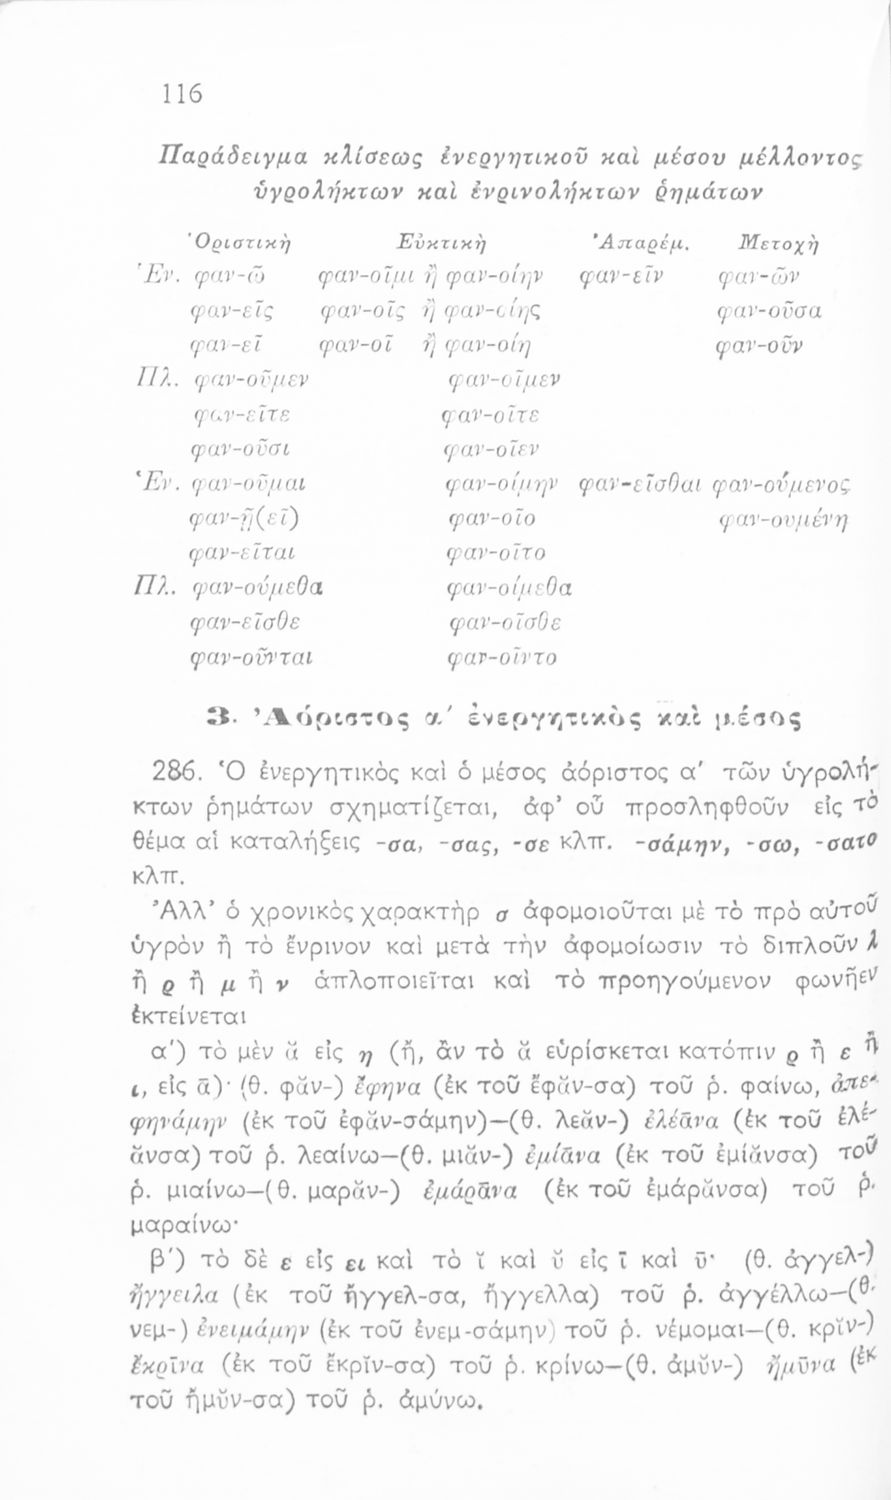 116
Παράδειγμα κλίσεως ἐνεργητικοῦ καὶ μέσου μέλλοντος
ὑγρολήκτων καὶ ἐνρινολήκτων ῥημάτων
Ὁριστικὴ Εὐκτικὴ Ἀπαρέμ. Μετοχὴ
Ἑν. φαν-ῶ φαν-οῖμι ἢ φαν-οίην φαν-εῖν φαν-ῶν
φαν-εῖς φαν-οῖς ἢ φαν-οίης φαν-οῦσα
φαν-εῖ φαν-οῖ ἢ φαν-οίη φαν-οῦν
Πλ. φαν-οῦμεν φαν-οῖμεν
φαν-εῖτε φαν-οῖτε
φαν-οῦσι φαν-οῖεν
Ἑν. φαν-οῦμαι φαν-οίμην φαν-εῖσθαι φαν-ούμενος
φαν-ῇ(εῖ) φαν-οῖο φαν-ουμένη
φαν-εῖται φαν-οῖτο
Πλ. φαν-ούμεθα φαν-οίμεθα
φαν-εῖσθε φαν-οῖσθε
φαν-οῦνται φαν-οῖντο
3. Ἀόριστος α΄ ἐνεργητικὸς καὶ μέσος
286. Ὁ ἐνεργητικὸς καὶ ὁ μέσος ἀόριστος α' τῶν ὑγρολή-
κτων ῥημάτων σχηματίζεται, ἀφ' οὗ προσληφθοῦν εἰς τὸ
θέμα αἱ καταλήξεις -σα, -σας, -σε κλπ. -σάμην, -σω, -σατο
κλπ.
Ἀλλ' ὁ χρονικὸς χαρακτὴρ σ ἀφομοιοῦται μὲ τὸ πρὸ αὐτοῦ
ὑγρὸν ἢ τὸ ἔνρινον καὶ μετὰ τὴν ἀφομοίωσιν τὸ διπλοῦν λ
ἢ ρ ἢ μ ἢ ν ἁπλοποιεῖται καὶ τὸ προηγούμενον φωνῆεν
ἐκτείνεται
α') τὸ μὲν ᾰ εἰς η (ἤ, ἂν τὸ ᾰ εὑρίσκεται κατόπιν ρ ἢ ε ἢ
ι, εἰς ᾱ)· (θ. φᾰν-) ἔφηνα (ἐκ τοῦ ἔφᾰν-σα) τοῦ ῥ. φαίνω, ἀπε-
φηνάμην (ἐκ τοῦ ἐφᾰν-σάμην)—(θ. λεᾰν-) ἐλέᾱνα (ἐκ τοῦ ἐλέ-
ᾰνσα) τοῦ ῥ. λεαίνω—(θ. μιᾰν-) ἐμίᾱνα (ἐκ τοῦ ἐμίᾰνσα) τοῦ
ῥ. μιαίνω—(θ. μαρᾰν-) ἐμάρᾱνα (ἐκ τοῦ ἐμάρᾰνσα) τοῦ ῥ.
μαραίνω·
β') τὸ δὲ ε εἰς ει καὶ τὸ ῐ καὶ ῠ εἰς ῑ καὶ ῡ· (θ. ἀγγελ-)
ἤγγειλα (ἐκ τοῦ ἤγγελ-σα, ἤγγελλα) τοῦ ῥ. ἀγγέλλω—(θ.
νεμ-) ἐνειμάμην (ἐκ τοῦ ἐνεμ-σάμην) τοῦ ῥ. νέμομαι—(θ. κρῐν-)
ἔκρῑνα (ἐκ τοῦ ἔκρῐν-σα) τοῦ ῥ. κρίνω—(θ. ἀμῠν-) ἤμῡνα (ἐκ
τοῦ ἤμῠν-σα) τοῦ ῥ. ἀμύνω.